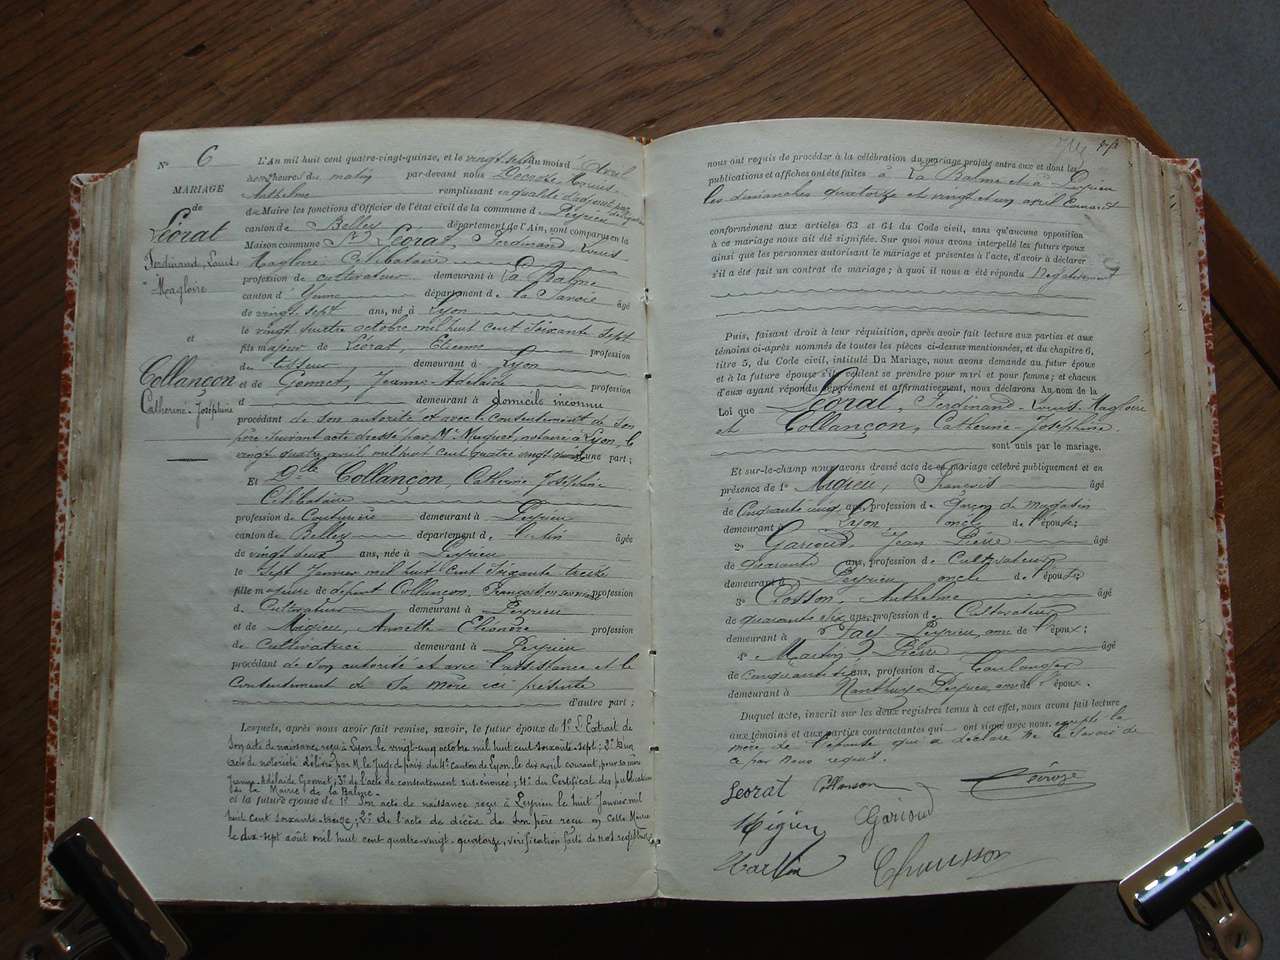 N° 6
MARIAGE
de
Léorat
Ferdinand, Louis
Magloire
et
Collançon
Catherine-Joséphine
L'An mil huit cent quatre-vingt-quinze, et le vingt sept du mois d'Avril
heures du matin par-devant nous Marius-
Anthelme remplissant en qualité d'adjoint par
de Maire les fonctions d'Officier de l'état civil de la commune de Peyrieu
canton de Belley département de l'Ain, sont comparus en la
Maison commune Léorat, Ferdinand, Louis
Magloire Célibataire
profession de cultivateur demeurant à La Balme
canton d'Yenne département de la Savoie âgé
de vingt-sept ans, né à Lyon
le vingt quatre octobre mil huit cent soixante sept
fils majeur de Léorat, Etienne profession
de tisseur demeurant à Lyon
et de Gonnet, Jeanne-Adélaïde profession
d demeurant à domicile inconnu
procédant de son autorité et avec le consentement de son
père suivant acte dressé par Me Muguet, notaire à Lyon, le
vingt quatre avril mil huit cent quatre vingt d'une part;
Et Dlle Collançon, Catherine Joséphine
Célibataire
profession de Couturière demeurant à Peyrieu
canton de Belley département de l'Ain âgée
de vingt deux ans, née à Peyrieu
le sept Janvier mil huit cent soixante treize
fille majeure de défunt Collançon, François en son vivant profession
d. Cultivateur demeurant à Peyrieu
et de Migieu, Annette-Eléonore profession
de cultivatrice demeurant à Peyrieu
procédant de son autorité et avec l'assistance et le
Contentement de sa mère ici présente
d'autre part;
Lesquels, après nous avoir fait remise, savoir, le futur époux de 1° L'Extrait de
son acte de naissance reçu à Lyon le vingt-cinq octobre mil huit cent soixante-sept; 2° d'un
acte de notoriété délivré par M. le Juge de paix du canton de Lyon, le dix avril courant, pour sa mère
Jeanne-Adélaïde Gonnet; 3° de l'acte de consentement sus-énoncé; 4° du Certificat des publications
de la Mairie de la Balme.
et la future épouse de 1° Son acte de naissance reçu à Peyrieu le huit Janvier mil
huit cent soixante-treize; 2° de l'acte de décès de son père reçu en cette Mairie
le dix-sept août mil huit cent quatre-vingt-quatorze, vérification faite de nos registres
nous ont requis de procéder à la célébration du mariage projeté entre eux et dont les
publications et affiches ont été faites à La Balme et à Peyrieu
les dimanches quatorze et vingt et un avril Courant
conformément aux articles 63 et 64 du Code civil, sans qu'aucune opposition
à ce mariage nous ait été signifiée. Sur quoi nous avons interpellé les futurs époux
ainsi que les personnes autorisant le mariage et présentes à l'acte, d'avoir à déclarer
s'il a été fait un contrat de mariage; à quoi il nous a été répondu Négativement
Puis, faisant droit à leur réquisition, après avoir fait lecture aux parties et aux
témoins ci-après nommés de toutes les pièces ci-dessus mentionnées, et du chapitre 6,
titre 5, du Code civil, intitulé Du Mariage, nous avons demandé au futur époux
et à la future épouse s'ils veulent se prendre pour mari et pour femme; et chacun
d'eux ayant répondu séparément et affirmativement, nous déclarons Au nom de la
Loi que Léorat, Ferdinand-Louis-Magloire
et Collançon, Catherine-Joséphine.
sont unis par le mariage.
Et sur-le-champ nous avons dressé acte de ce mariage célébré publiquement et en
présence de 1° Migieu, François âgé
de Cinquante cinq ans, profession de Garçon de magasin
demeurant à Lyon, oncle de l'épouse;
2° Garioud, Jean Pierre âgé
de Quarante ans, profession de Cultivateur
demeurant à Peyrieu oncle de l'épouse;
3° Cosson, Anthelme âgé
de quarante six ans, profession de Cultivateur
demeurant à Peyrieu, ami de l'époux;
4° Martin, Pierre âgé
de cinquante ans, profession de boulanger
demeurant à Peyrieu, ami de l'époux.
Duquel acte, inscrit sur les deux registres tenus à cet effet, nous avons fait lecture
aux témoins et aux parties contractantes qui ont signé avec nous, excepté la
mère de l'épouse qui a déclaré ne le savoir de
ce par nous requis.
Leorat Collanson
Migieu Garioud
Martin Chausson